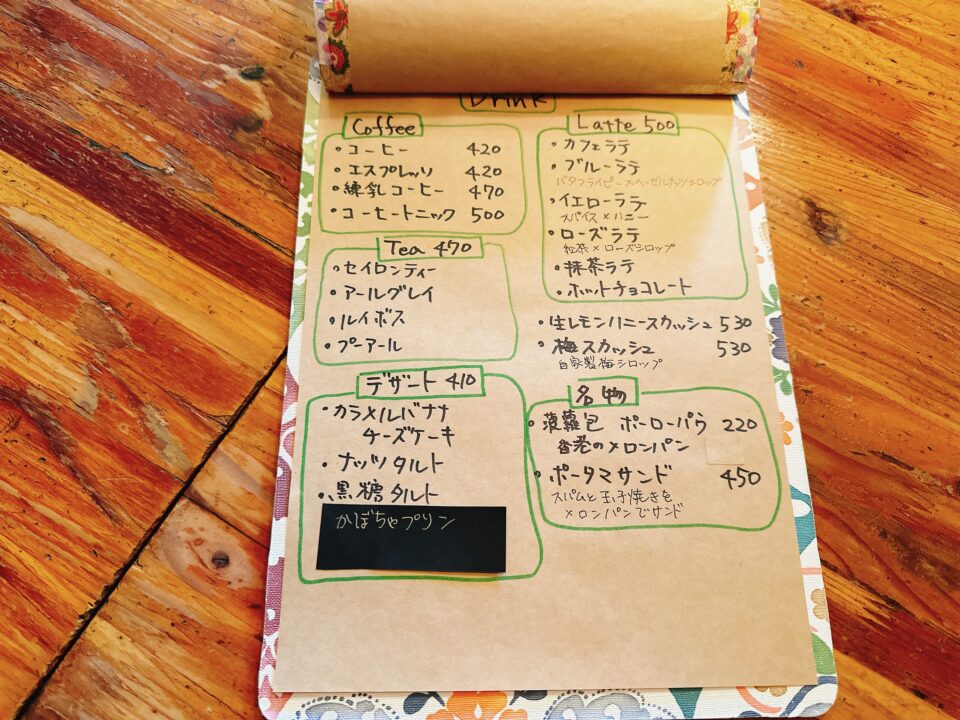 Drink
Coffee
・コーヒー 420
・エスプレッソ 420
・練乳コーヒー 470
・コーヒートニック 500
Tea 470
・セイロンティー
・アールグレイ
・ルイボス
・プーアール
デザート 410
・カラメルバナナ
チーズケーキ
・ナッツタルト
・黒糖タルト
かぼちゃプリン
Latte 500
・カフェラテ
・ブルーラテ
バタフライピー×ヘーゼルナッツシロップ
・イエローラテ
スパイス×ハニー
・ローズラテ
紅茶×ローズシロップ
・抹茶ラテ
・ホットチョコレート
・生レモンハニースカッシュ 530
・梅スカッシュ 530
自家製梅シロップ
名物
・菠蘿包 ポーローパウ 220
香港のメロンパン
・ポータマサンド 450
スパムと玉子焼きを
メロンパンでサンド